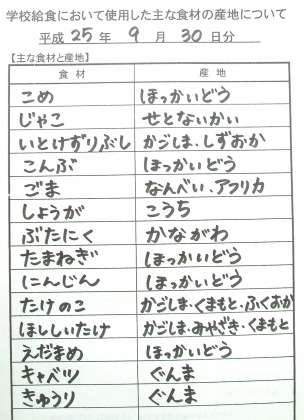 学校給食において使用した主な食材の産地について
平成 25 年 9 月 30 日分
【主な食材と産地】
食材 産地
こめ ほっかいどう
じゃこ せとないかい
いとけずりぶし かごしま・しずおか
こんぶ ほっかいどう
ごま なんべい、アフリカ
しょうが こうち
ぶたにく かながわ
たまねぎ ほっかいどう
にんじん ほっかいどう
たけのこ かごしま・くまもと・ふくおか
ほししいたけ かごしま・みやざき・くまもと
えだまめ ほっかいどう
キャベツ ぐんま
きゅうり ぐんま